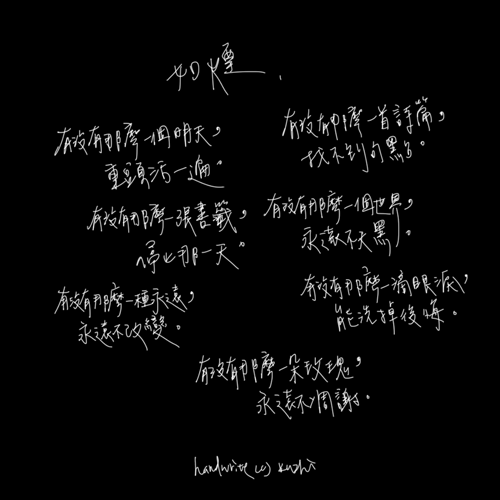 如煙.
有沒有那麼一個明天，
重頭活一遍。
有沒有那麼一張書籤，
停止那一天。
有沒有那麼一種永遠，
永遠不改變。
有沒有那麼一首詩篇，
找不到句點。
有沒有那麼一個世界，
永遠不天黑。
有沒有那麼一滴眼淚，
能洗掉後悔。
有沒有那麼一朵玫瑰，
永遠不凋謝。
handwrite by